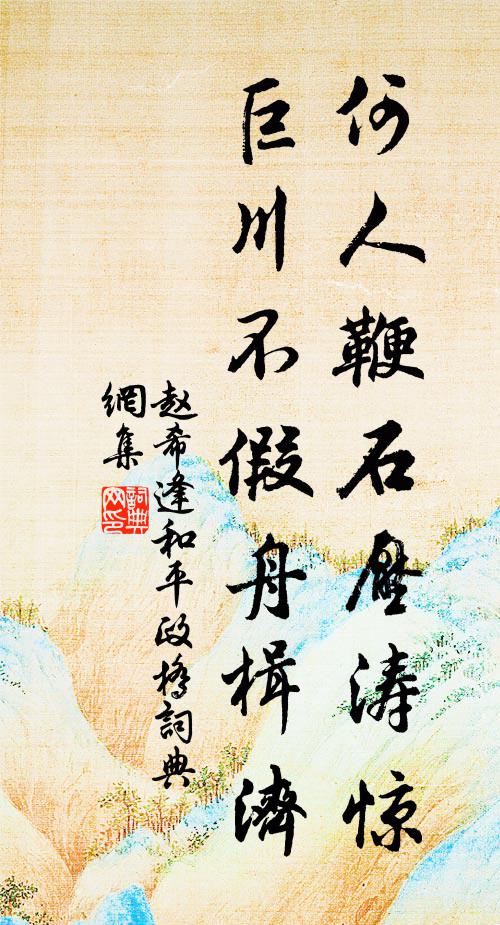 何人鞭石压涛惊
巨川不假舟楫濟
赵希逢和平政橋詞典
網集
詞典
网印